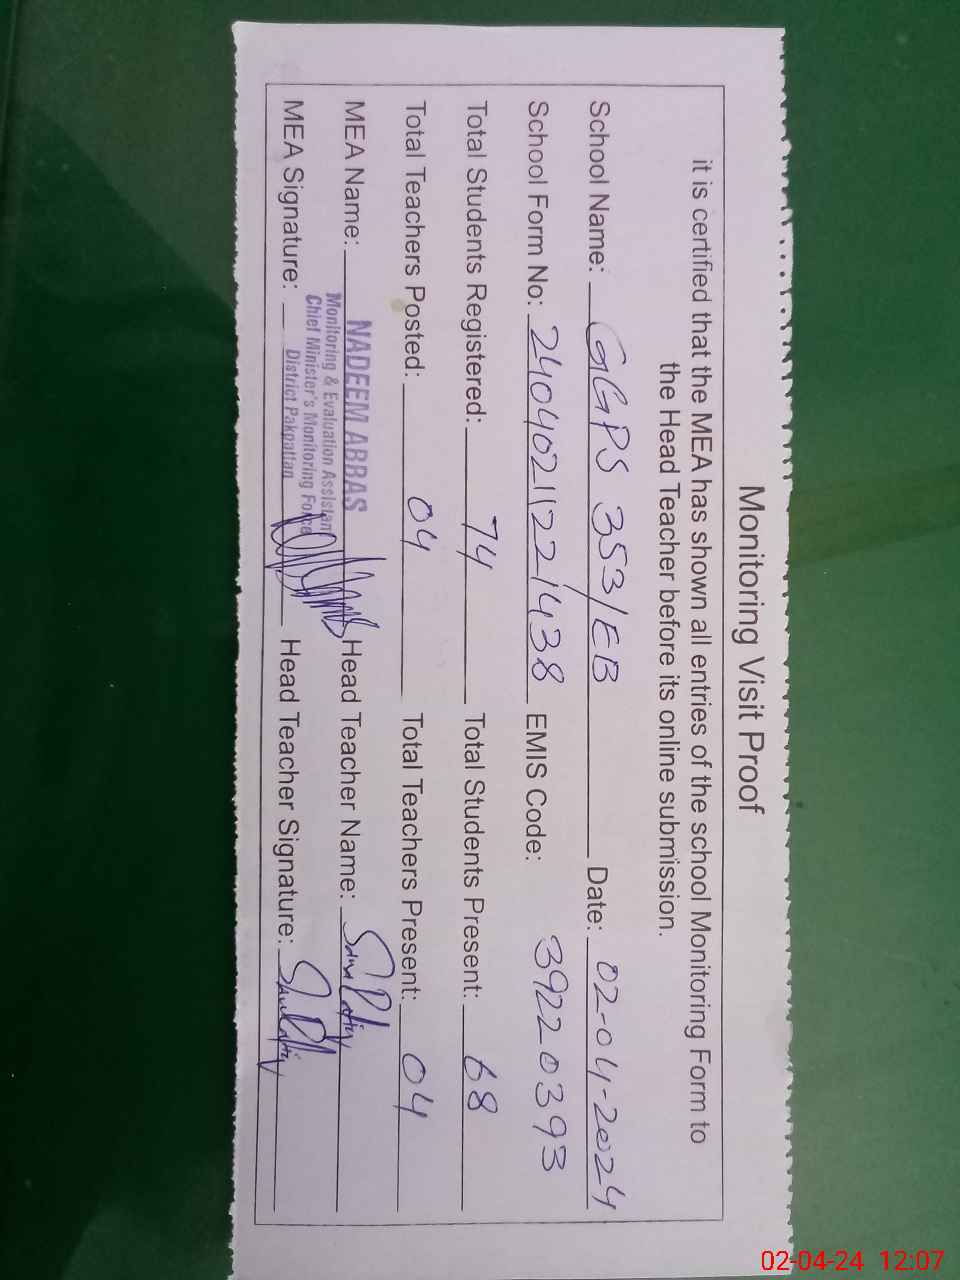 Monitoring Visit Proof
it is certified that the MEA has shown all entries of the school Monitoring Form to
the Head Teacher before its online submission.
School Name: GGPS 353/EB Date: 02-04-2024
School Form No: 24040211221438 EMIS Code: 39220393
Total Students Registered: 74 Total Students Present: 68
Total Teachers Posted: 04 Total Teachers Present: 04
MEA Name: NADEEM ABBAS Head Teacher Name:
Monitoring & Evaluation Assistant
Chief Minister's Monitoring Force
District Pakpattan
MEA Signature: Head Teacher Signature:
02-04-24 12:07